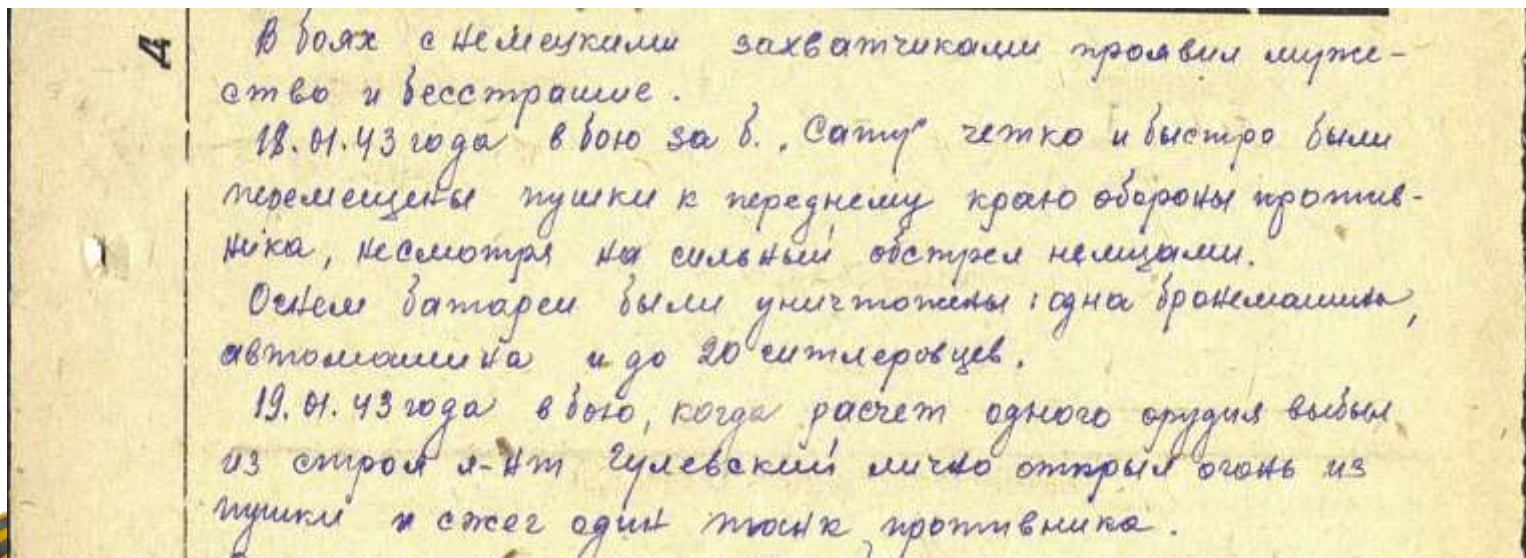 А
В боях с немецкими захватчиками проявил муже-
ство и бесстрашие.
18.01.43 года в бою за б. "Сату" четко и быстро были
перемещены пушки к переднему краю обороны против-
ника, несмотря на сильный обстрел немцами.
Огнем батареи были уничтожены: одна бронемашина,
автомашина и до 20 гитлеровцев.
19.01.43 года в бою, когда расчет одного орудия выбыл
из строя л-нт Гулевский лично открыл огонь из
пушки и сжег один танк противника.